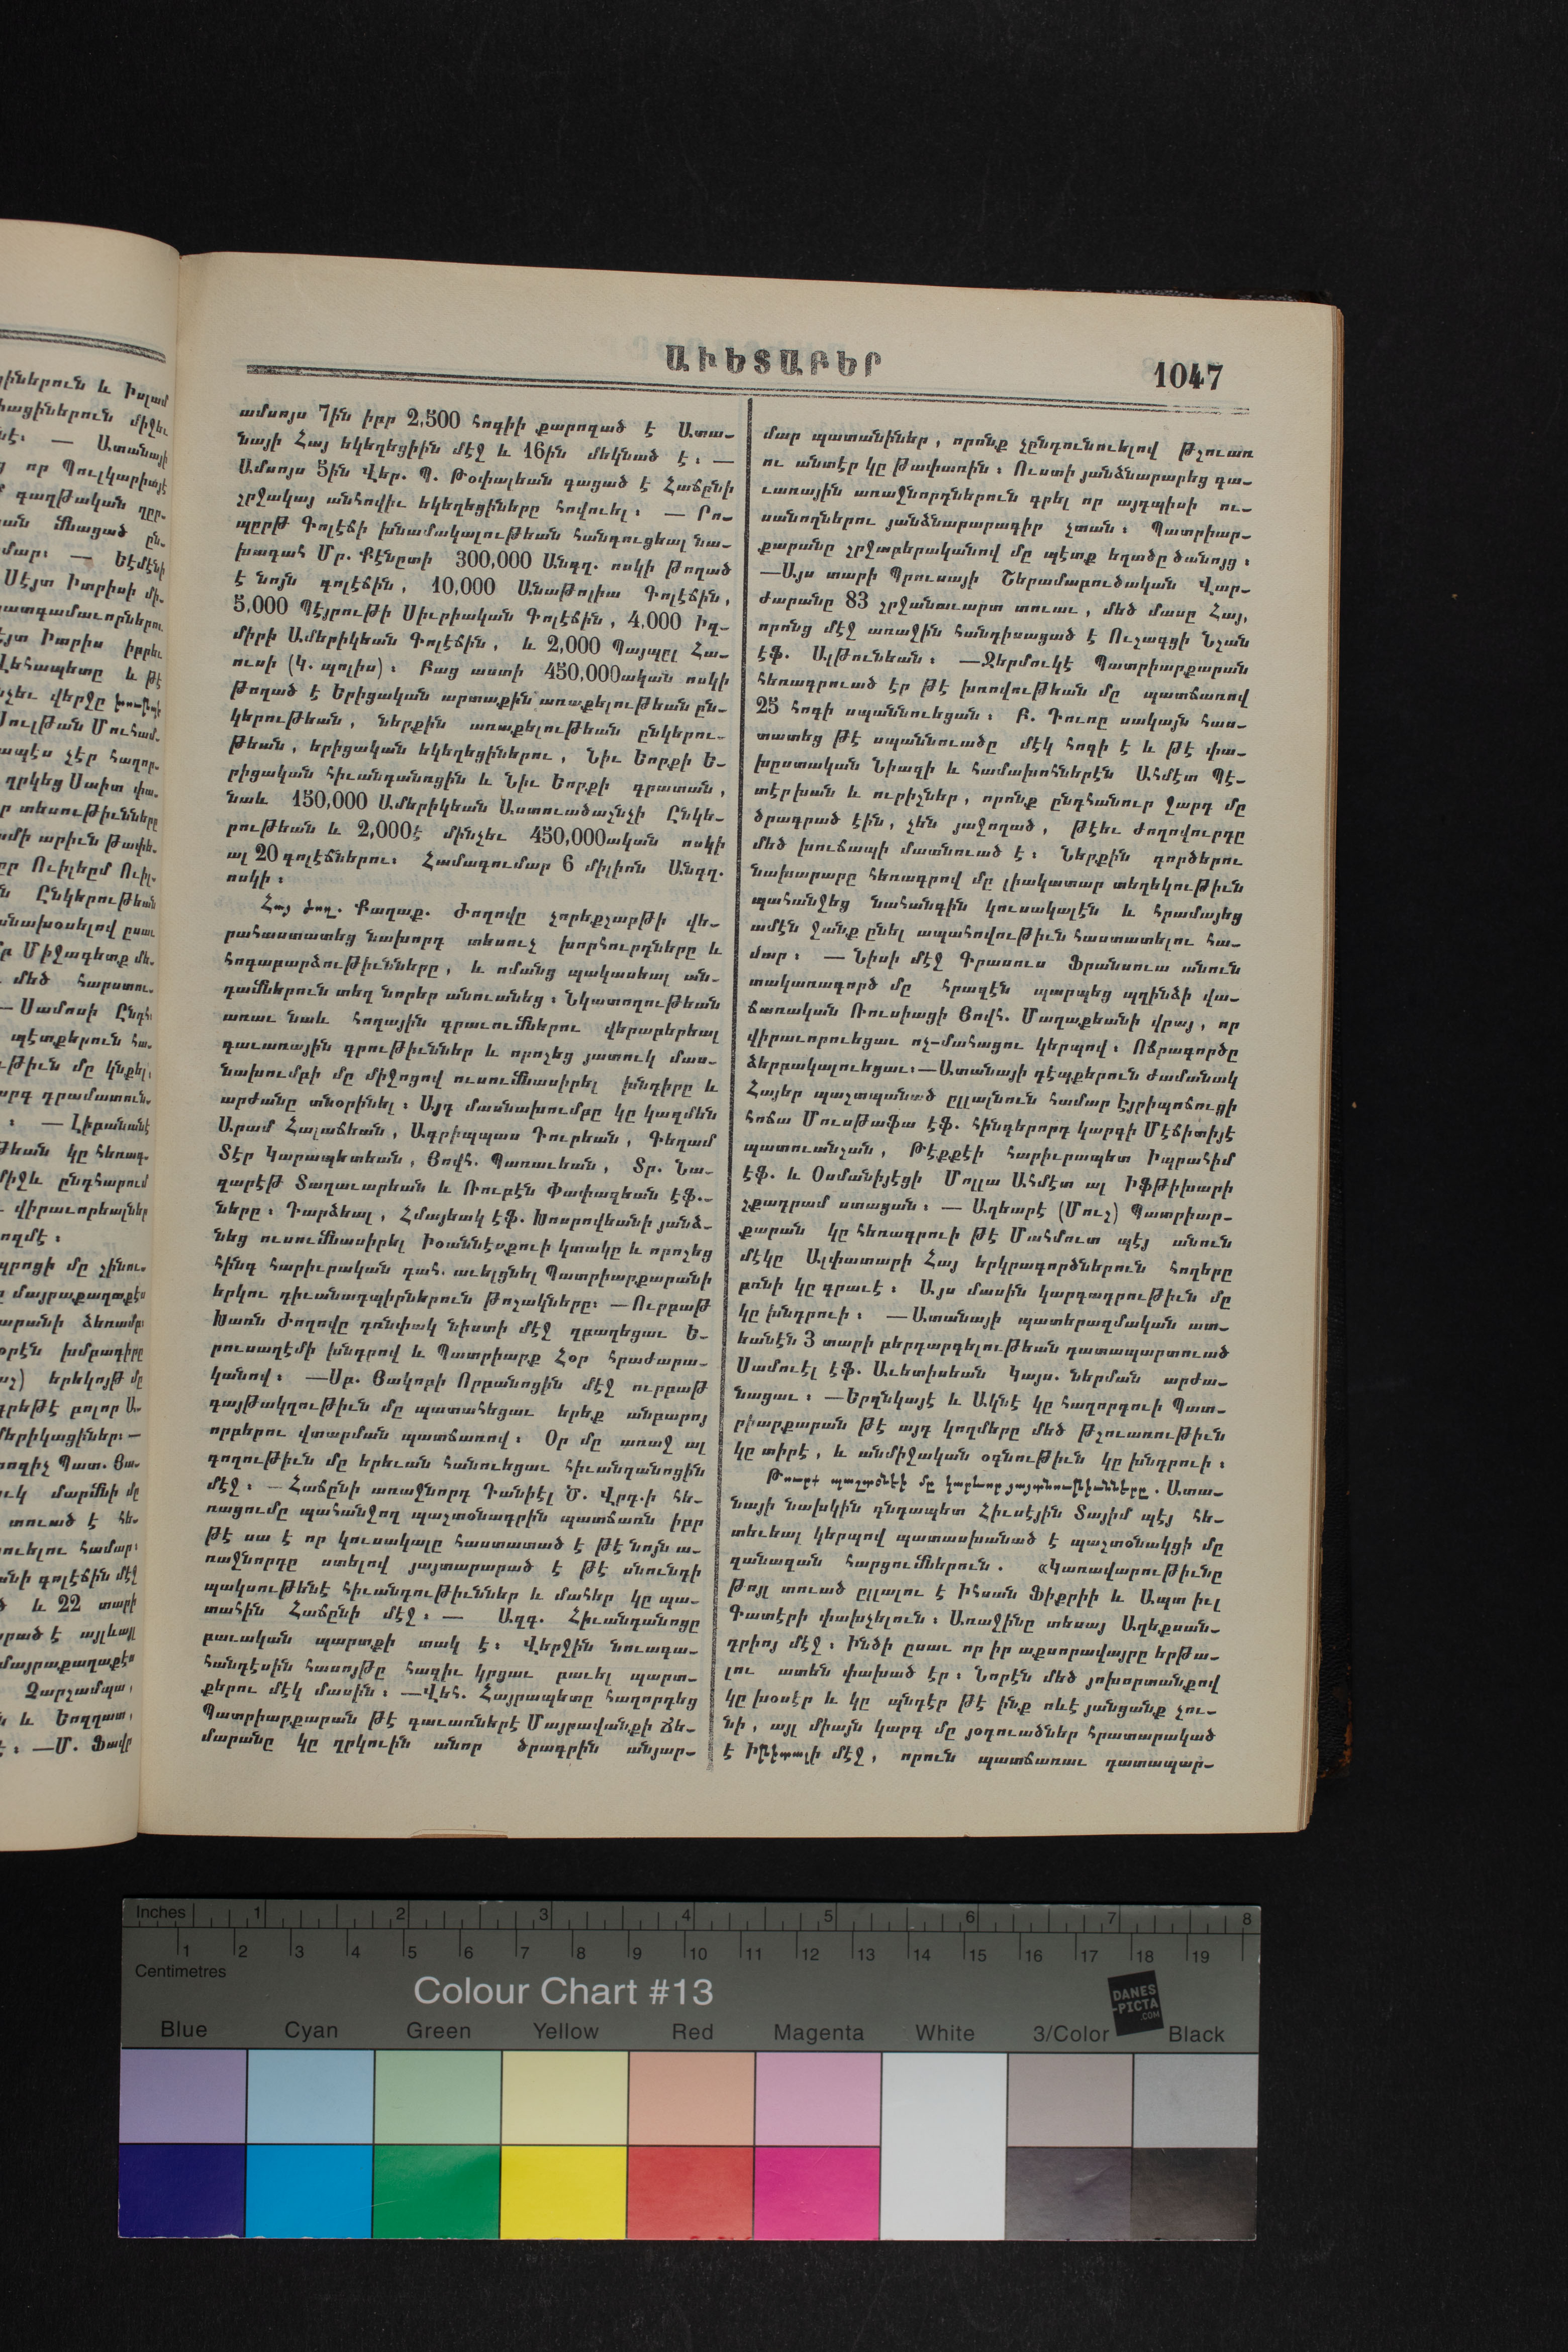 ԱՒԵՏԱԲԵՐ
1047
ամսոյս 7ին իբր 2,500 հոգիի քարոզած է Ատա-
նայի Հայ եկեղեցիին մէջ և 16ին մեկնած է։ —
Ամսոյս 5ին Վեր. Պ. Թօփալեան գացած է Հաճընի
շրջակայ անհովիւ եկեղեցիները հովուել։ — Րո-
պըրթ Գոլէճի խնամակալութեան հանգուցեալ նա-
խագահ Մր. Քէնըտի 300,000 Անգղ. ոսկի թողած
է նոյն գոլէճին, 10,000 Անաթոլիա Գոլէճին,
5,000 Պէյրութի Սիւրիական Գոլէճին, 4,000 Իզ-
միրի Ամերիկեան Գոլէճին, և 2,000 Պայպըլ Հա-
ուսի (Կ. պոլիս)։ Բաց աստի 450,000ական ոսկի
թողած է Երիցական արտաքին առաքելութեան ըն-
կերութեան, ներքին առաքելութեան ընկերու-
թեան, երիցական եկեղեցիներու, Նիւ Եորքի Ե-
րիցական հիւանդանոցին և Նիւ Եորքի գրատան,
նաև 150,000 Ամերիկեան Աստուածաշնչի Ընկե-
րութեան և 2,000է մինչեւ 450,000ական ոսկի
ալ 20 գոլէճներու։ Համագումար 6 միլիոն Անգղ.
ոսկի։
Հայ ժող. Քաղաք. Ժողովը չորեքշաբթի վե-
րահաստատեց նախորդ տեսուչ խորհուրդները և
հոգաբարձութիւնները, և ոմանց պակասեալ ան-
դամներուն տեղ նորեր անուանեց։ Նկատողութեան
առաւ նաև հողային գրաւումներու վերաբերեալ
գաւառային գրութիւններ և որոշեց յատուկ մաս-
նախումբի մը միջոցով ուսումնասիրել խնդիրը և
արժանը տնօրինել։ Այդ մասնախումբը կը կազմեն
Արամ Հալաճեան, Ագրիպպաս Դուրեան, Գեղամ
Տէր Կարապետեան, Յովհ. Պառաւեան, Տր. Նա-
զարէթ Տաղաւարեան և Ռուբէն Փափազեան Էֆ.-
ները։ Դարձեալ, Հմայեակ էֆ. Խոսրովեանի յանձ-
նեց ուսումնասիրել Իօաննէսքուի կտակը և որոշեց
հինգ հարիւրական դահ. աւելցնել Պատրիարքարանի
երկու դիւանադպիրներուն թոշակները։ —Ուրբաթ
Խառն Ժողովը դռնփակ նիստի մէջ զբաղեցաւ Ե-
րուսաղէմի խնդրով և Պատրիարք Հօր հրաժարա-
կանով։ —Սբ. Յակոբի Որբանոցին մէջ ուրբաթ
գայթակղութիւն մը պատահեցաւ երեք անբարոյ
որբերու վտարման պատճառով։ Օր մը առաջ ալ
գողութիւն մը երեւան հանուեցաւ հիւանդանոցին
մէջ։ —Հաճընի առաջնորդ Դանիէլ Ծ. Վրդ.ի հե-
ռացումը պահանջող պաշտօնագրին պատճառն իբր
թէ սա է որ կուսակալը հաստատած է թէ նոյն ա-
ռաջնորդը ստելով յայտարարած է թէ սնունդի
պակսութենէ հիւանդութիւններ և մահեր կը պա-
տահին Հաճընի մէջ։ — Ազգ. Հիւանդանոցը
բաւական պարտքի տակ է։ Վերջին նուագա-
հանդէսին հասոյթը հազիւ կրցաւ բաւել պարտ-
քերու մէկ մասին։ —Վեհ. Հայրապետը հաղորդեց
Պատրիարքարան թէ գաւառներէ Մայրավանքի Ճե-
մարանը կը ղրկուին անոր ծրագրին անյար-
մար պատանիներ, որոնք չընդունուելով թշուառ
ու անտէր կը թափառին։ Ուստի յանձնարարեց գա-
ւառային առաջնորդներուն գրել որ այդպիսի ու-
սանողներու յանձնարարագիր չտան։ Պատրիար-
քարանը շրջաբերականով մը պէտք եղածը ծանոյց։
—Այս տարի Պրուսայի Շերամաբուծական Վար-
ժարանը 83 շրջանաւարտ տուաւ, մեծ մասը Հայ,
որոնց մէջ առաջին հանդիսացած է Ուշագցի Նշան
էֆ. Ալթունեան։ —Ջերմուկէ Պատրիարքարան
հեռագրուած էր թէ խռովութեան մը պատճառով
25 հոգի սպաննուեցան։ Բ. Դուռը սակայն հաս-
տատեց թէ սպաննուածը մէկ հոգի է և թէ փա-
խըստական Նիազի և համախոհներէն Ահմէտ Պէ-
տէրխան և ուրիշներ, որոնք ընդհանուր ջարդ մը
ծրագրած էին, չեն յաջողած, թէեւ ժողովուրդը
մեծ խուճապի մատնուած է։ Ներքին գործերու
նախարարը հեռագրով մը լիակատար տեղեկութիւն
պահանջեց նահանգին կուսակալէն և հրամայեց
ամէն ջանք ընել ապահովութիւն հաստատելու հա-
մար։ — Նիսի մէջ Գրասուս Ֆրանսուա անուն
տակառագործ մը հրազէն պարպեց պղինձի վա-
ճառական Ռուսիացի Յովհ. Մաղաքեանի վրայ, որ
վիրաւորուեցաւ ոչ-մահացու կերպով։ Ոճրագործը
ձերբակալուեցաւ։—Ատանայի դէպքերուն ժամանակ
Հայեր պաշտպանած ըլլալնուն համար Էյրիպոճուգի
հոճա Մուսթաֆա էֆ. հինգերորդ կարգի Մէճիտիյէ
պատուանշան, Թէքքէի հարիւրապետ Իպրահիմ
էֆ. և Օսմանիյէցի Մոլլա Ահմէտ ալ Իֆթիխարի
շքադրամ ստացան։ — Աղեարէ (Մուշ) Պատրիար-
քարան կը հեռագրուի թէ Մահմուտ պէյ անուն
մէկը Ալփատարի Հայ երկրագործներուն հողերը
բռնի կը գրաւէ։ Այս մասին կարգադրութիւն մը
կը խնդրուի։ —Ատանայի պատերազմական ատ-
եանէն 3 տարի բերդարգելութեան դատապարտուած
Սամուէլ էֆ. Աւետիսեան Կայս. ներման արժա-
նացաւ։ —Երզնկայէ և Ակնէ կը հաղորդուի Պատ-
րիարքարան թէ այդ կողմերը մեծ թշուառութիւն
կը տիրէ, և անմիջական օգնութիւն կը խնդրուի։
Թուրք պաշտօնէի մը կարևոր յայտնութիւնները. Ատա-
նայի նախկին գնդապետ Հիւսէյին Տայիմ պէյ հե-
տեւեալ կերպով պատասխանած է պաշտօնակցի մը
զանազան հարցումներուն. «Կառավարութիւնը
թոյլ տուած ըլլալու է Իհսան Ֆիքրիի և Ապտ իւլ
Գատէրի փախչելուն։ Առաջինը տեսայ Աղեքսան-
դրիոյ մէջ։ Ինծի ըսաւ որ իր աքսորավայրը երթա-
լու ատեն փախած էր։ Նորէն մեծ յոխորտանքով
կը խօսէր և կը պնդէր թէ ինք ոևէ յանցանք չու-
նի, այլ միայն կարգ մը յօդուածներ հրատարակած
է Իթիտալի մէջ, որուն պատճառաւ դատապար-
Inches 1 2 3 4 5 6 7 8
1 2 3 4 5 6 7 8 9 10 11 12 13 14 15 16 17 18 19
Centimetres
Colour Chart #13
DANES
-PICTA
.COM
Blue Cyan Green Yellow Red Magenta White 3/Color Black